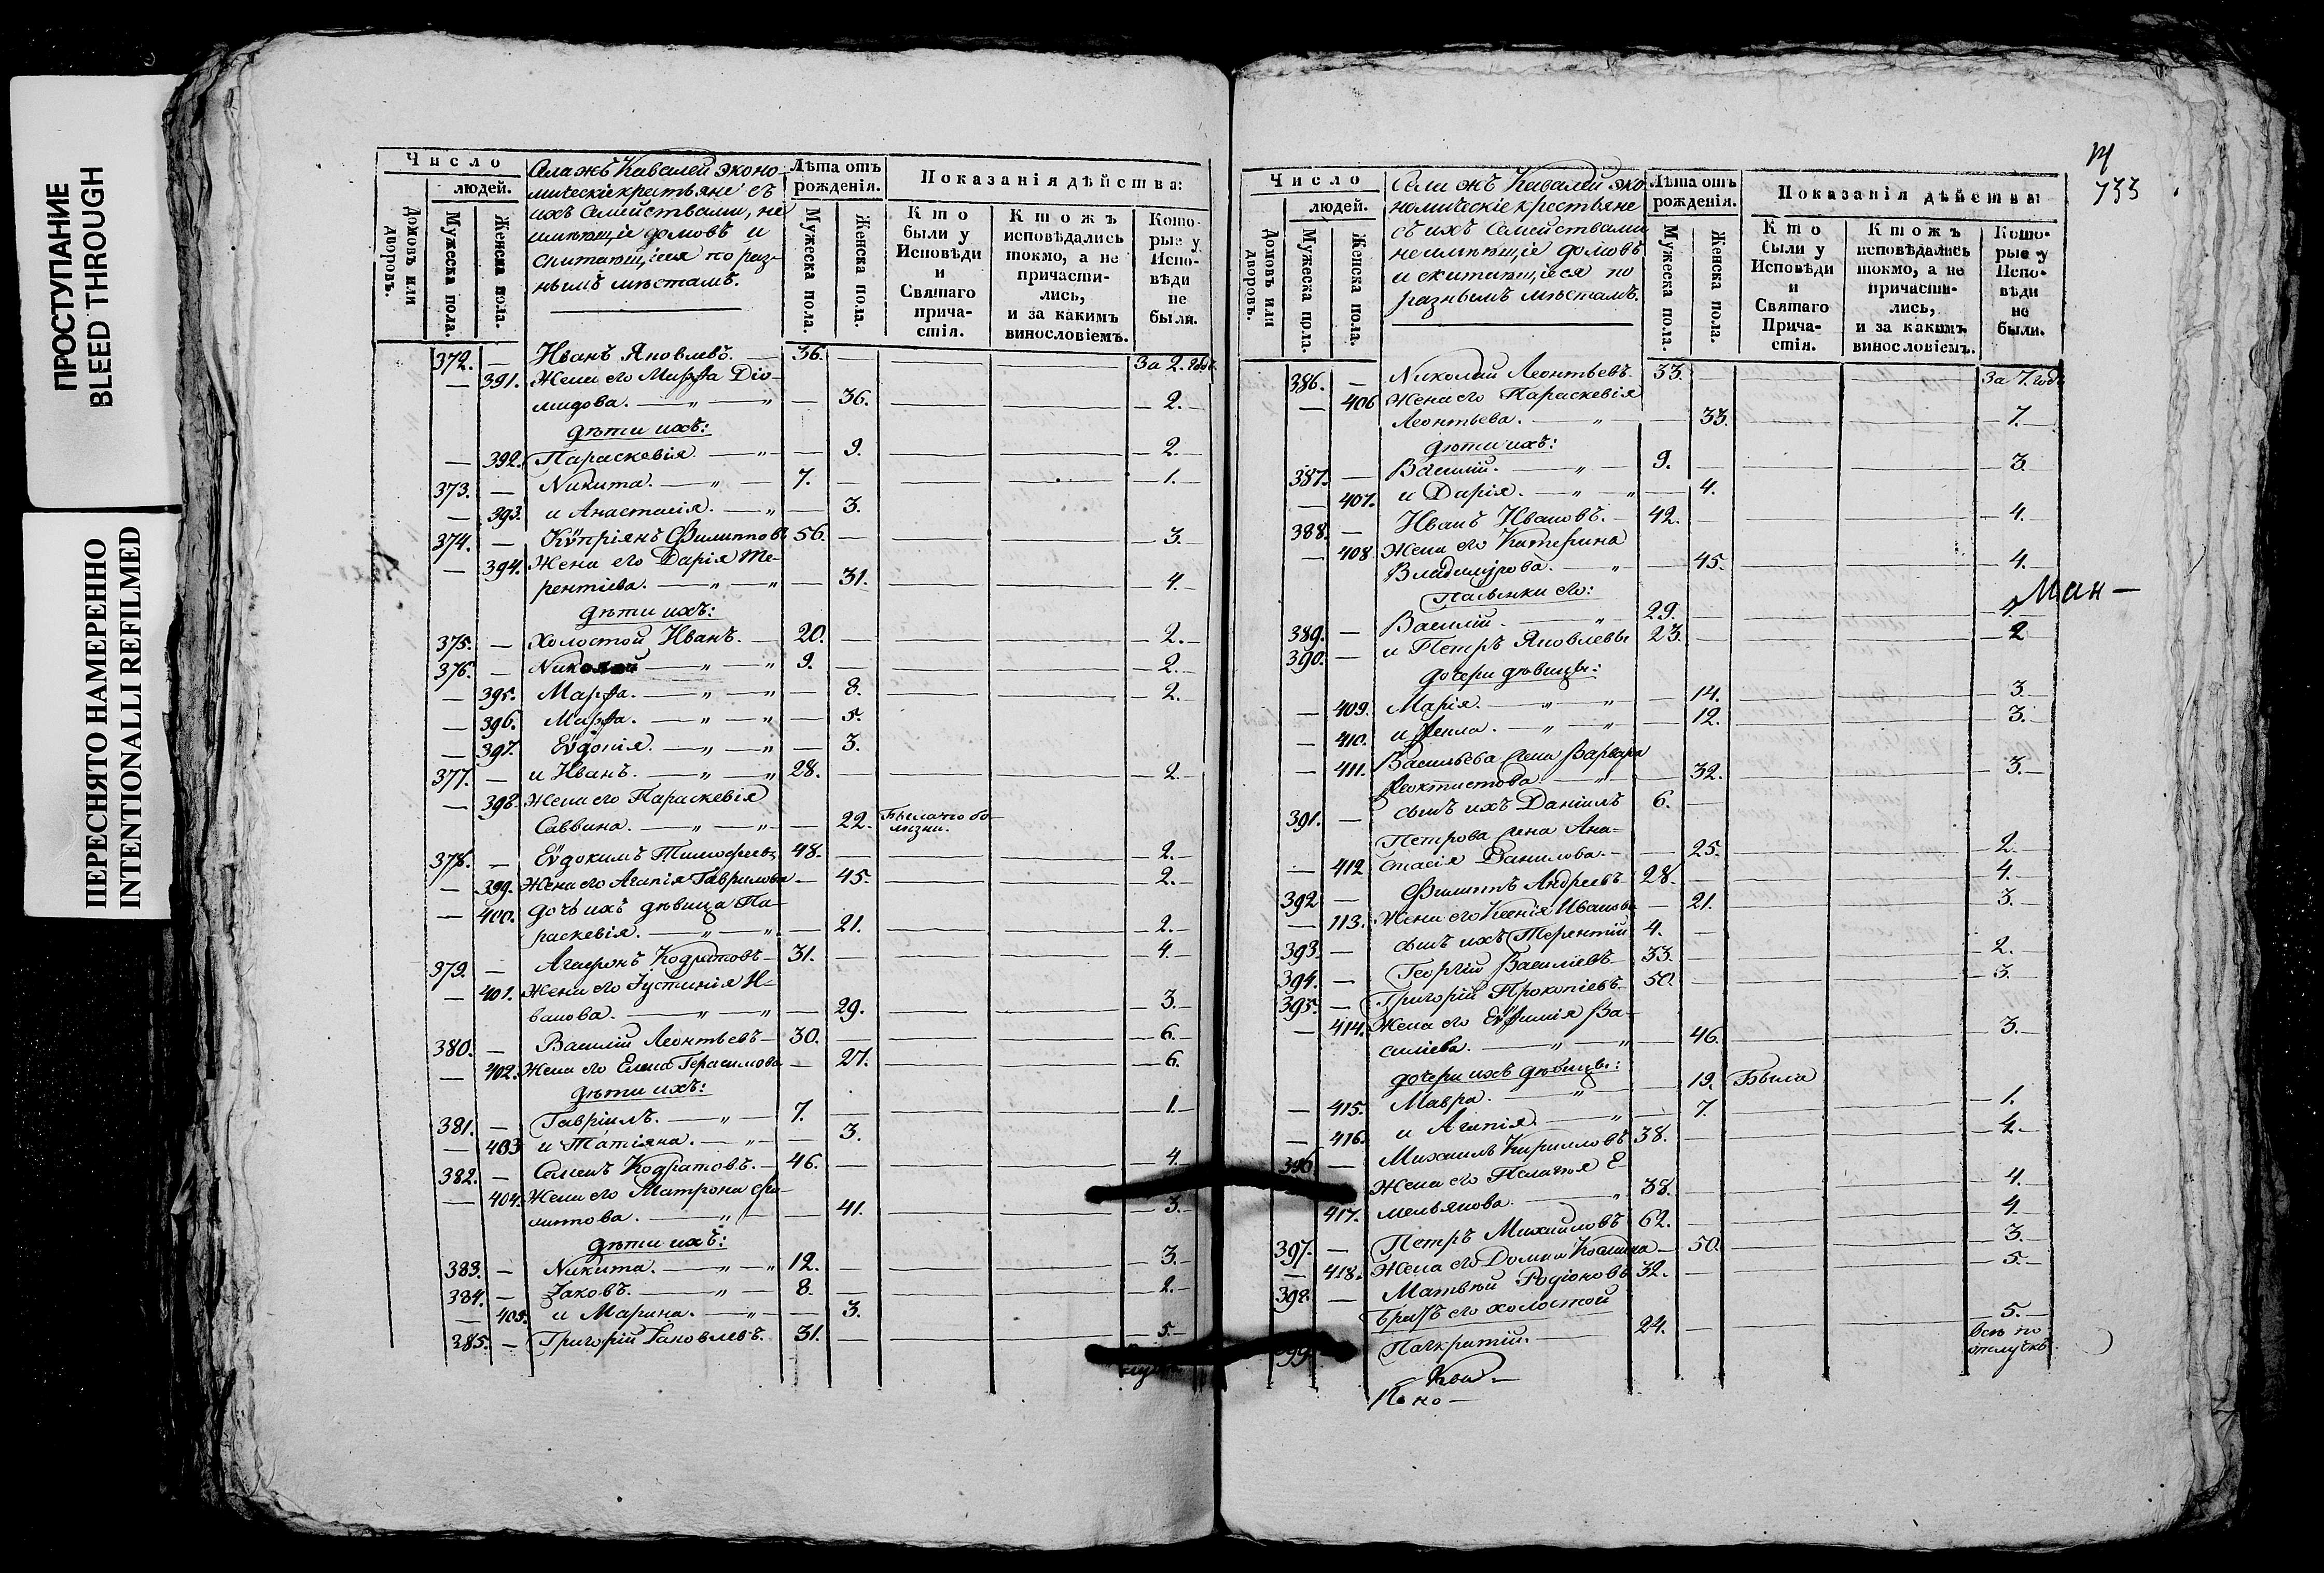 ПРОСТУПАНИЕ
BLEED THROUGH
ПЕРЕСНЯТО НАМЕРЕННО
INTENTIONALLI REFILMED
Число
людей.
Домовъ или дворовъ.
Мужеска пола.
Женска пола.
Села жъ Кавалей эконо-
мическіе крестьяне съ
ихъ семействами, не
имѣющіе домовъ и
скитающіеся по раз-
нымъ мѣстамъ.
Лѣта отъ рожденія.
Мужеска пола.
Женска пола.
Показанія дѣйства:
Кто были у Исповѣди и Святаго причастія.
Ктожъ исповѣдались токмо, а не причастились, и за какимъ винословіемъ.
Которые у Исповѣди не были.
372. — Иванъ Яковлевъ. — 36. — За 2. года
— 391. Жена его Марѳа Діо-
мидова. — 36. — 2.
дѣти ихъ:
— 392. Параскевія. — 9. — 2.
373. — Никита. — 7. — 1.
— 393. и Анастасія. — 3.
374. — Кѵпріянъ Филиповъ 56. — 3.
— 394. Жена его Дарія Те-
рентіева. — 31. — 4.
дѣти ихъ:
375. — Холостой Иванъ. — 20. — 2.
376. — Николай — 9. — 2.
— 395. Марѳа. — 8. — 2.
— 396. Марѳа. — 5.
— 397. Еѵдокія. — 3.
377. — и Иванъ. — 28. — 2
— 398. Жена его Параскевія
Саввина. — 22. Была по бо-
лѣзни.
378. — Еѵдокимъ Тимофеевъ 48. — 2.
— 399. Жена его Агапія Гаврилова — 45. — 2.
— 400. дочь ихъ дѣвица Па-
раскевія. — 21. — 2.
379. — Агафонъ Кодратовъ — 31. — 4.
— 401. Жена его Іустинія И-
ванова. — 29. — 3.
380. — Василій Леонтьевъ — 30. — 6.
— 402. Жена его Елена Герасимова — 27. — 6.
дѣти ихъ:
381. — Гавріилъ. — 7. — 1.
— 403 и Татіяна. — 3.
382. — Семенъ Кодратовъ. — 46. — 4.
— 404. Жена его Матрона Фи-
липова. — 41. — 3.
дѣти ихъ:
383. — Никита. — 12. — 3.
384. — Іаковъ. — 8. — 2.
— 405. и Марина. — 3.
385. — Григорій Іаковлевъ. 31. — 5.
733
Число
людей.
Домовъ или дворовъ.
Мужеска пола.
Женска пола.
Села жъ Кавалей эко-
номическіе крестьяне
съ ихъ семействами
неимѣющіе домовъ
и скитающіеся по
разнымъ мѣстамъ.
Лѣта отъ рожденія.
Мужеска пола.
Женска пола.
Показанія дѣйства:
Кто были у Исповѣди и Святаго Причастія.
Ктожъ исповѣдались токмо, а не причастились, и за какимъ винословіемъ.
Которые у Исповѣди не были.
386. — Николай Леонтьевъ 33. — За 7. годъ
— 406 Жена его Параскевія
Леонтьева. — 33. — 7.
дѣти ихъ:
387. — Василій. — 9. — 3
— 407. и Дарія. — 4.
388. — Иванъ Ивановъ. — 42. — 4.
— 408. Жена его Катерина
Владимірова. — 45. — 4.
Пасынки его:
389. — Василій. — 29. — 4
Ман—
390. — и Петръ Яковлевы 23. — 2
дочери дѣвицы:
— 409. Марія. — 14. — 3.
— 410. и Ѳекла. — 12. — 3.
— 411. Васильева жена Варвара
Ѳеоктистова — 32. — 3.
391. — сынъ ихъ Даніилъ 6. —
Петрова жена Ана-
— 412 стасія Данилова. — 25. — 2.
392 — Филиппъ Андреевъ 28. — 4.
— 113. Жена его Ксенія Иванова — 21. — 3.
393. — сынъ ихъ Терентій 4. —
394. — Георгій Василіевъ. 33. — 2.
395. — Григорій Прокопіевъ. 50. — 3.
— 414. Жена его Еѵѳимія Ва-
силіева. — 46. — 3.
дочери ихъ дѣвицы:
— 415. Мавра. — 19. Была
— 416. и Агапія. — 7. — 1.
396 — Михаилъ Кирилловъ 38. — 4.
Жена его Пелагея Е-
417. мельянова. — 38. — 4.
397. — Петръ Михайловъ 62. — 4.
— 418. Жена его Домна Космина — 50. — 3.
398. — Матвѣй Родіоновъ 32. — 5.
братъ его холостой
399 Панкратій. — 24. — 5.
всѣ по
отлучкѣ.